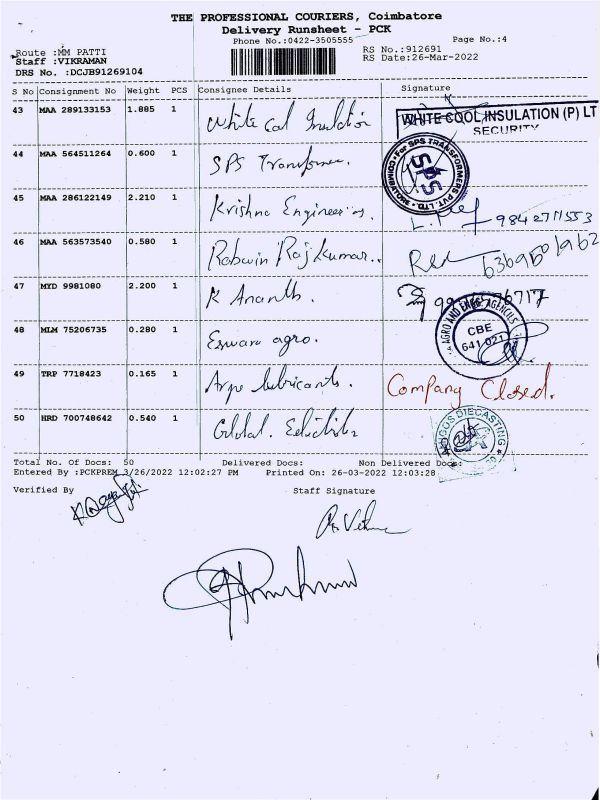 THE PROFESSIONAL COURIERS, Coimbatore
Delivery Runsheet - PCK
Phone No.:0422-3505555 Page No.:4
Route :MM PATTI RS No.:912691
Staff :VIKRAMAN RS Date:26-Mar-2022
DRS No. :DCJB91269104
S No Consignment No Weight PCS Consignee Details Signature
43 MAA 289133153 1.885 1 White Cool Insulation WHITE COOL INSULATION (P) LT
SECURITY
44 MAA 564511264 0.600 1 SPS Transformer. For SPS TRANSFORMERS PVT. LTD. COIMBATORE SPS
45 MAA 286122149 2.210 1 Krishna Engineerings. 9842711553
46 MAA 563573540 0.580 1 Robwin Rajkumar..
47 MYD 9981080 2.200 1 K Ananth.
48 MLM 75206735 0.280 1 Eswara agro. AGRO AND ENGG. AGENCIES
CBE
641 021
49 TRP 7718423 0.165 1 Arpe lubricants. Company Closed.
50 HRD 700748642 0.540 1 Global. DIECASTING
Total No. Of Docs: 50 Delivered Docs: Non Delivered Docs:
Entered By :PCKPREM 3/26/2022 12:02:27 PM Printed On: 26-03-2022 12:03:28
Verified By Staff Signature